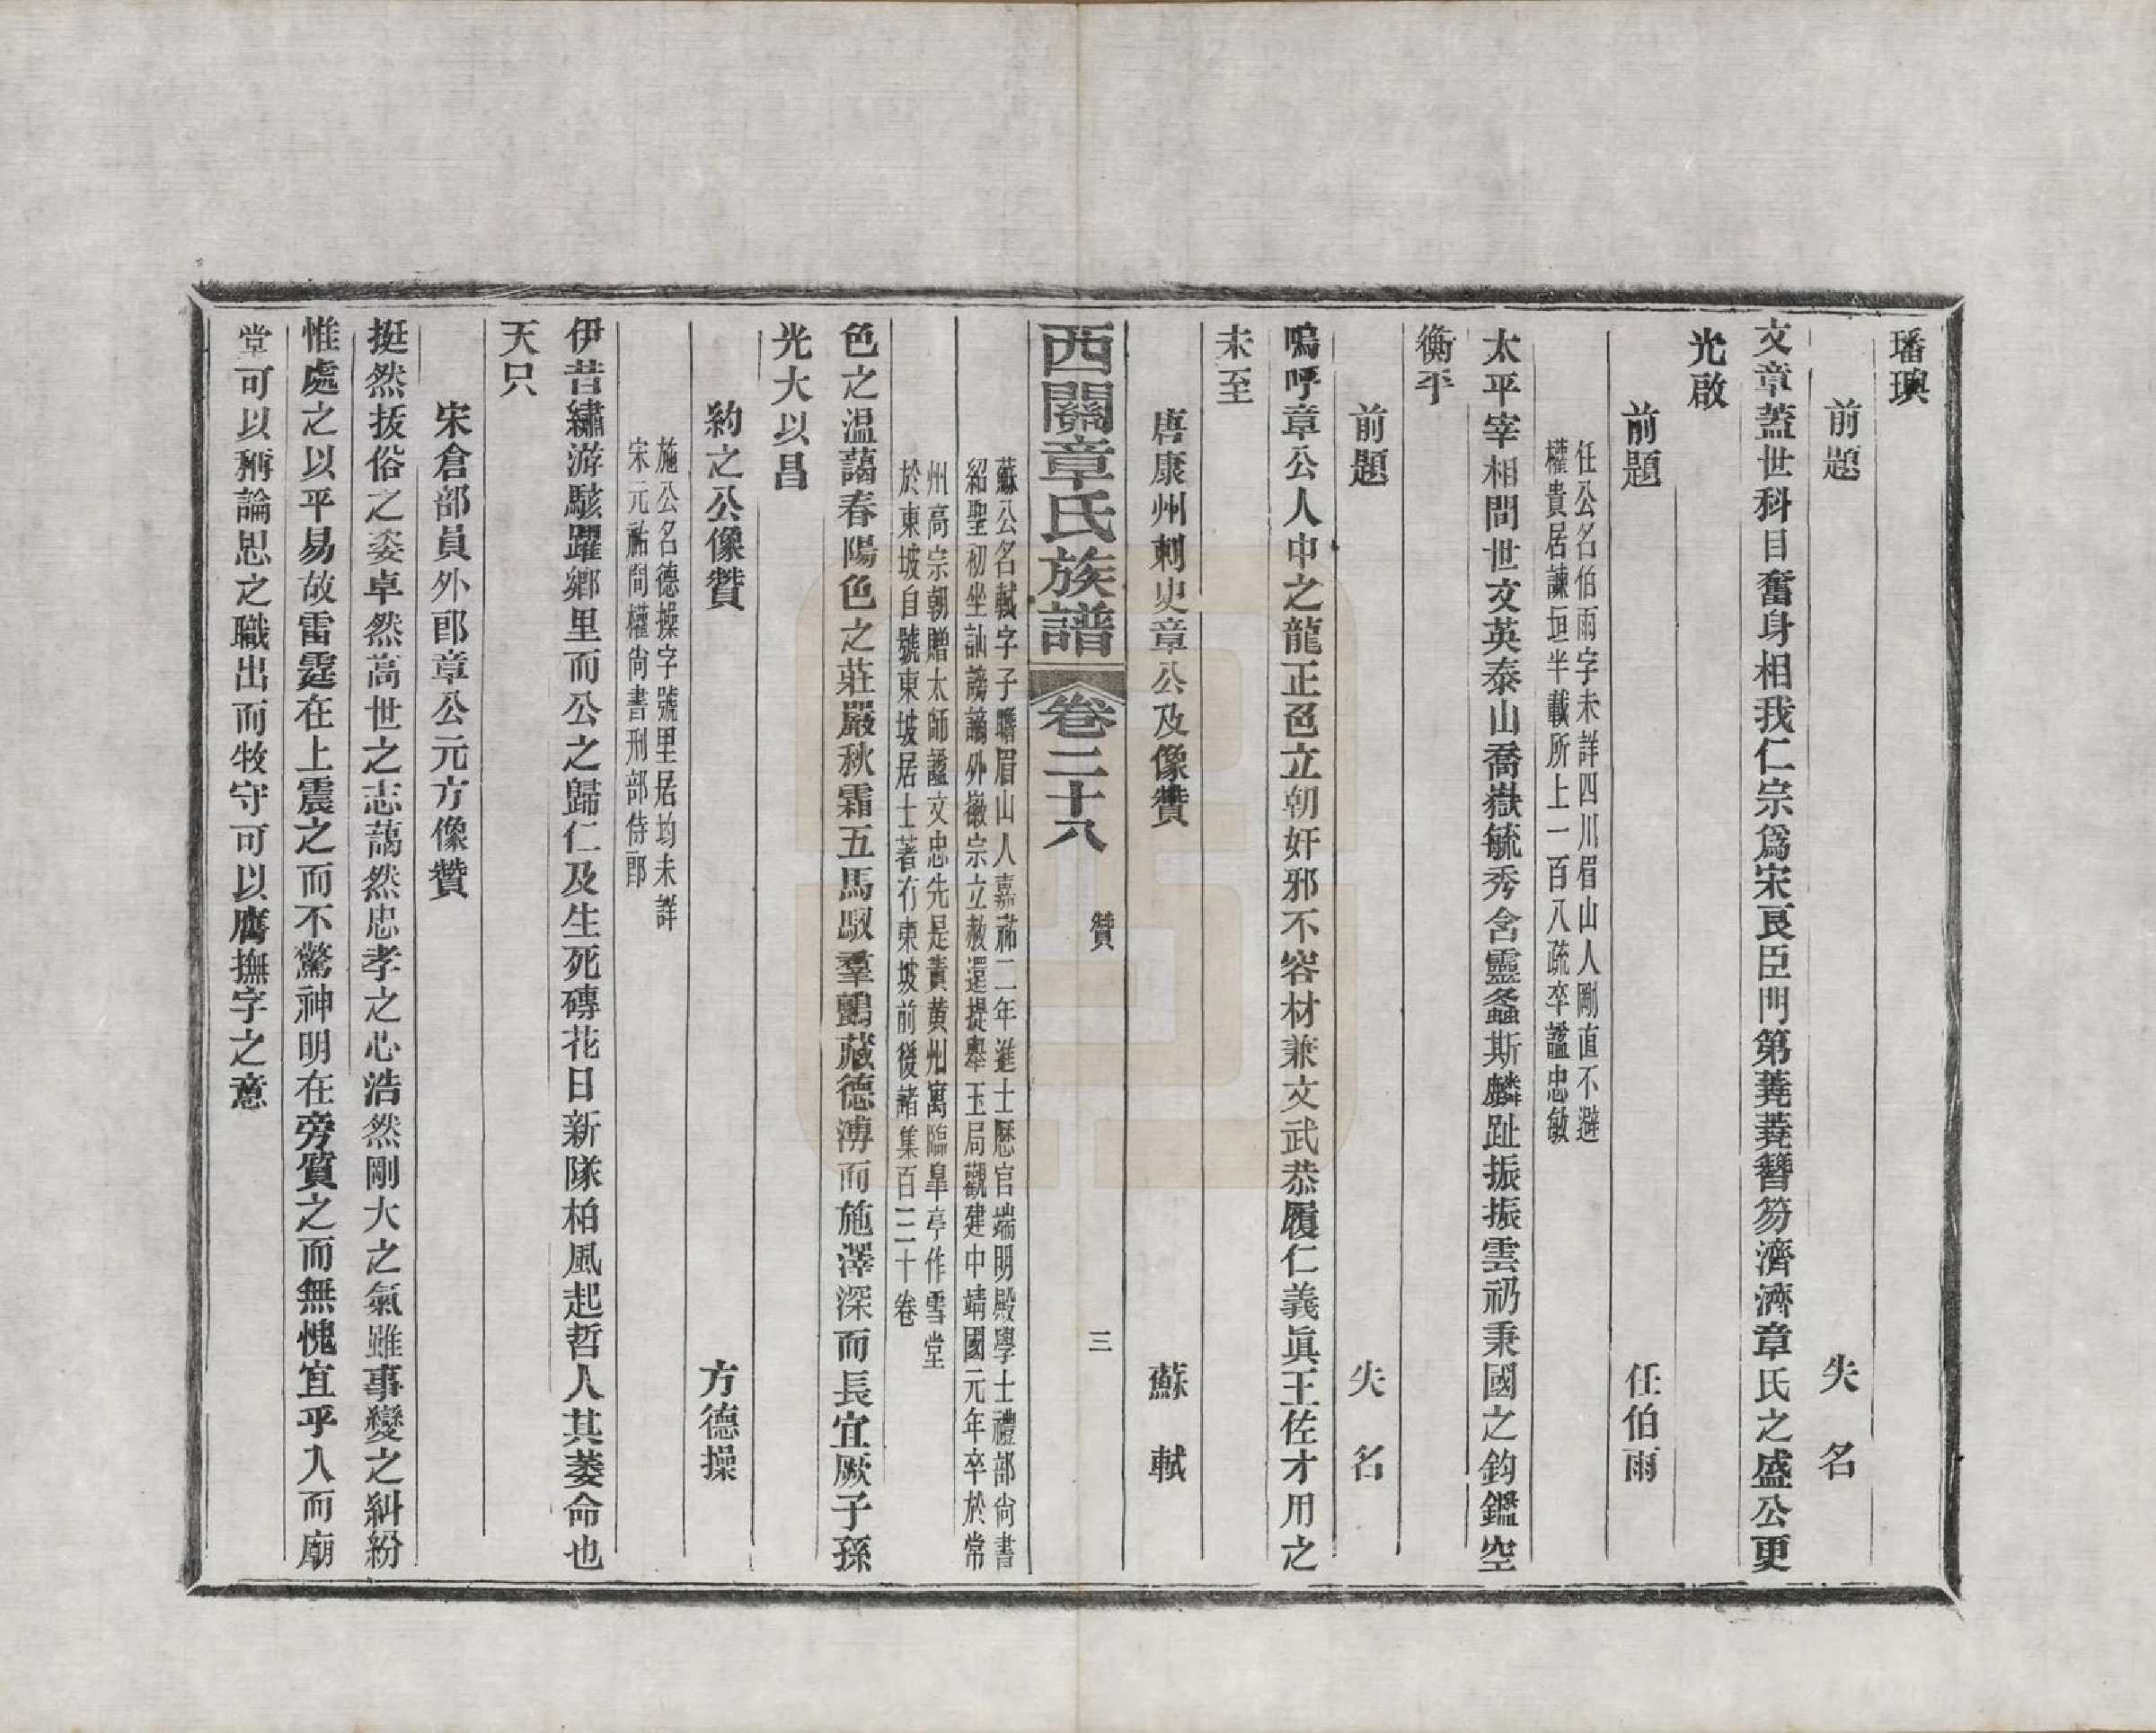 璠璵
前題 失名
文章蓋世科目奮身相我仁宗爲宋良臣門第蕘蕘簪笏濟濟章氏之盛公更
光啟
前題 任伯雨
任公名伯雨字未詳四川眉山人剛直不避
權貴居諫垣半載所上一百八疏卒諡忠敏
太平宰相間世文英泰山喬嶽毓秀含靈螽斯麟趾振振雲礽秉國之鈞鑑空
衡平
前題 失名
嗚呼章公人中之龍正色立朝奸邪不容材兼文武恭履仁義眞王佐才用之
未至
唐康州刺史章公及像贊 蘇軾
西關章氏族譜 卷二十八 贊 三
蘇公名軾字子瞻眉山人嘉祐二年進士歷官端明殿學士禮部尙書
紹聖初坐訕謗謫外徽宗立赦還提舉玉局觀建中靖國元年卒於常
州高宗朝贈太師諡文忠先是責黃州寓臨皐亭作雪堂
於東坡自號東坡居士著有東坡前後諸集百二十卷
色之温藹春陽色之莊嚴秋霜五馬馭羣鸕藏德溥而施澤深而長宜厥子孫
光大以昌
約之公像贊 方德操
施公名德操字號里居均未詳
宋元祐間權尙書刑部侍郎
伊昔繡游駭躍鄉里而公之歸仁及生死磚花日新隊柏風起哲人其萎命也
天只
宋倉部員外郎章公元方像贊
挺然拔俗之姿卓然高世之志藹然忠孝之心浩然剛大之氣雖事變之糾紛
惟處之以平易故雷霆在上震之而不驚神明在旁質之而無愧宜乎入而廟
堂可以稱論思之職出而牧守可以膺撫字之意